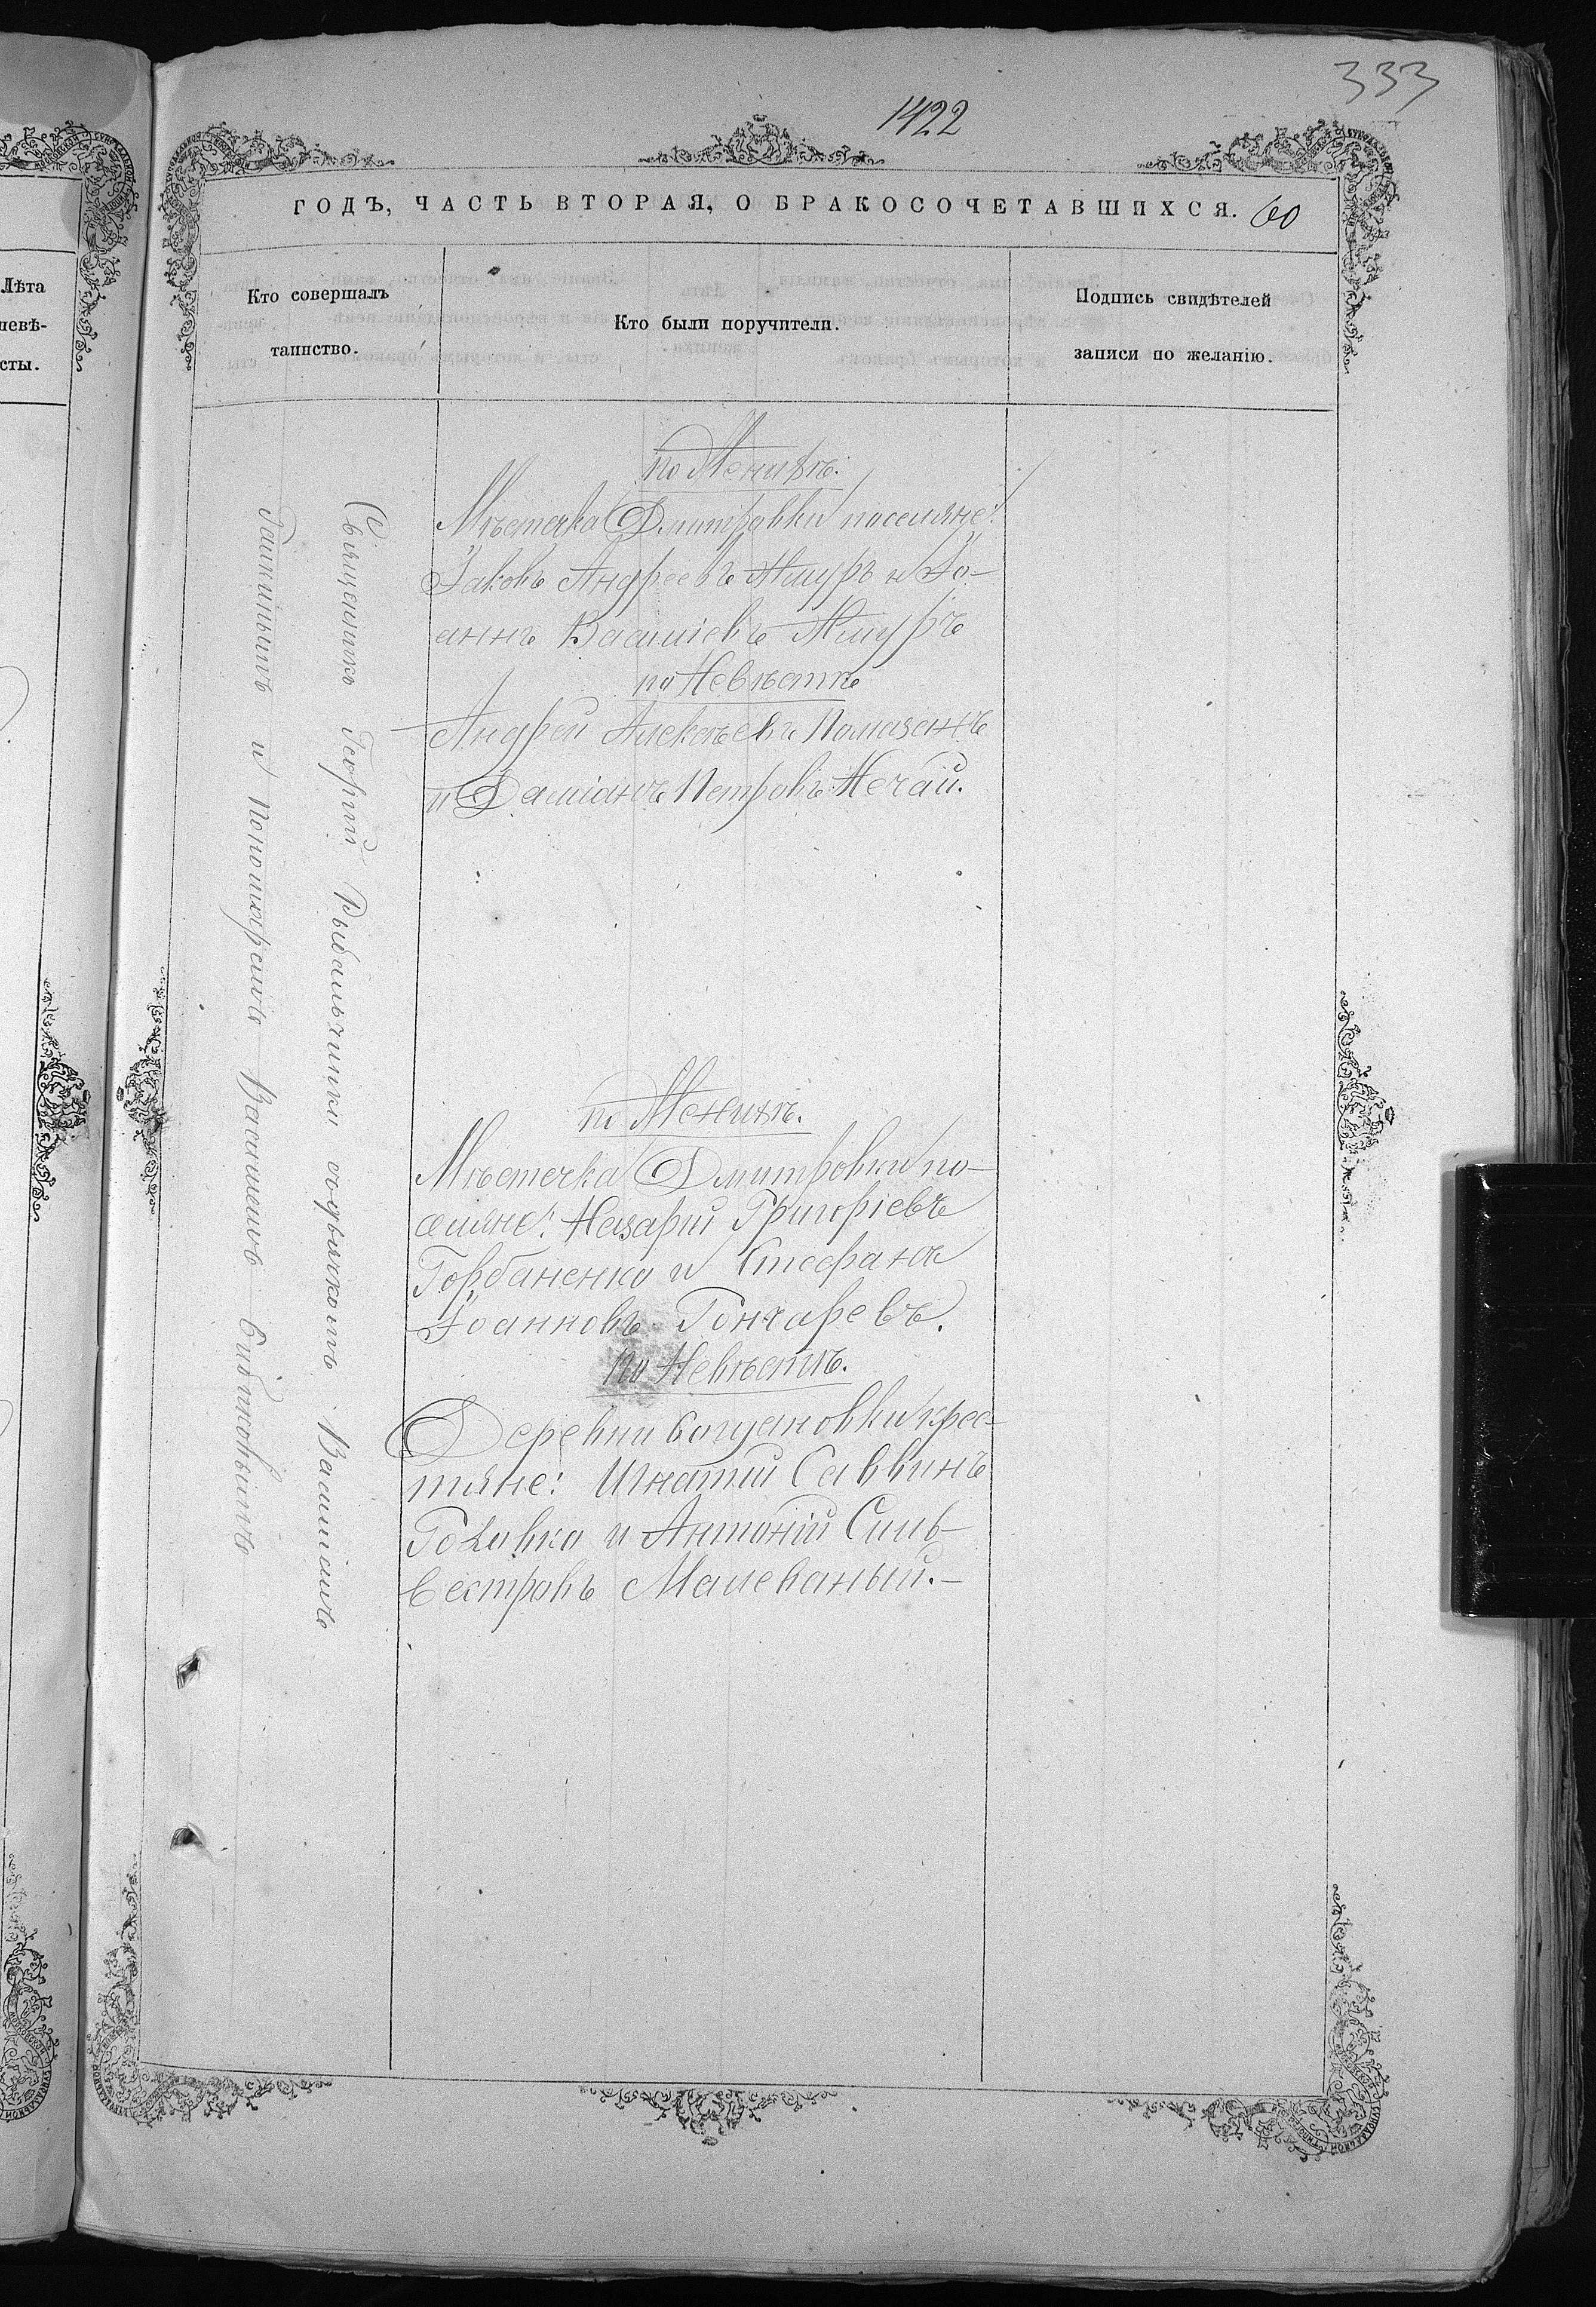 333
1422
ГОДЪ, ЧАСТЬ ВТОРАЯ, О БРАКОСОЧЕТАВШИХСЯ. 60
Лѣта
невѣ-
сты.
Кто совершалъ
таинство.
Кто были поручители.
Подпись свидѣтелей
записи по желанію.
Священникъ Георгій Рыбальчинки съ дьячкомъ Василіемъ
и Пономаремъ Василіемъ
по Женихѣ:
Мѣстечка Дмитровки поселяне:
Іаковъ Андреевъ Жмуръ и Іо-
аннъ Василіевъ Жмуръ
по Невѣстѣ
Андрей Алексѣевъ Помазанъ
и Даміанъ Петровъ Нечай.
по Женихѣ.
Мѣстечка Дмитровки по-
селяне: Назарій Григоріевъ
Горбаненко и Стефанъ
Іоанновъ Гончаревъ.
по Невѣстѣ.
Деревни Богдановки крес-
тяне: Игнатій Саввинъ
Головко и Антоній Силь-
вестровъ Малеваный.-